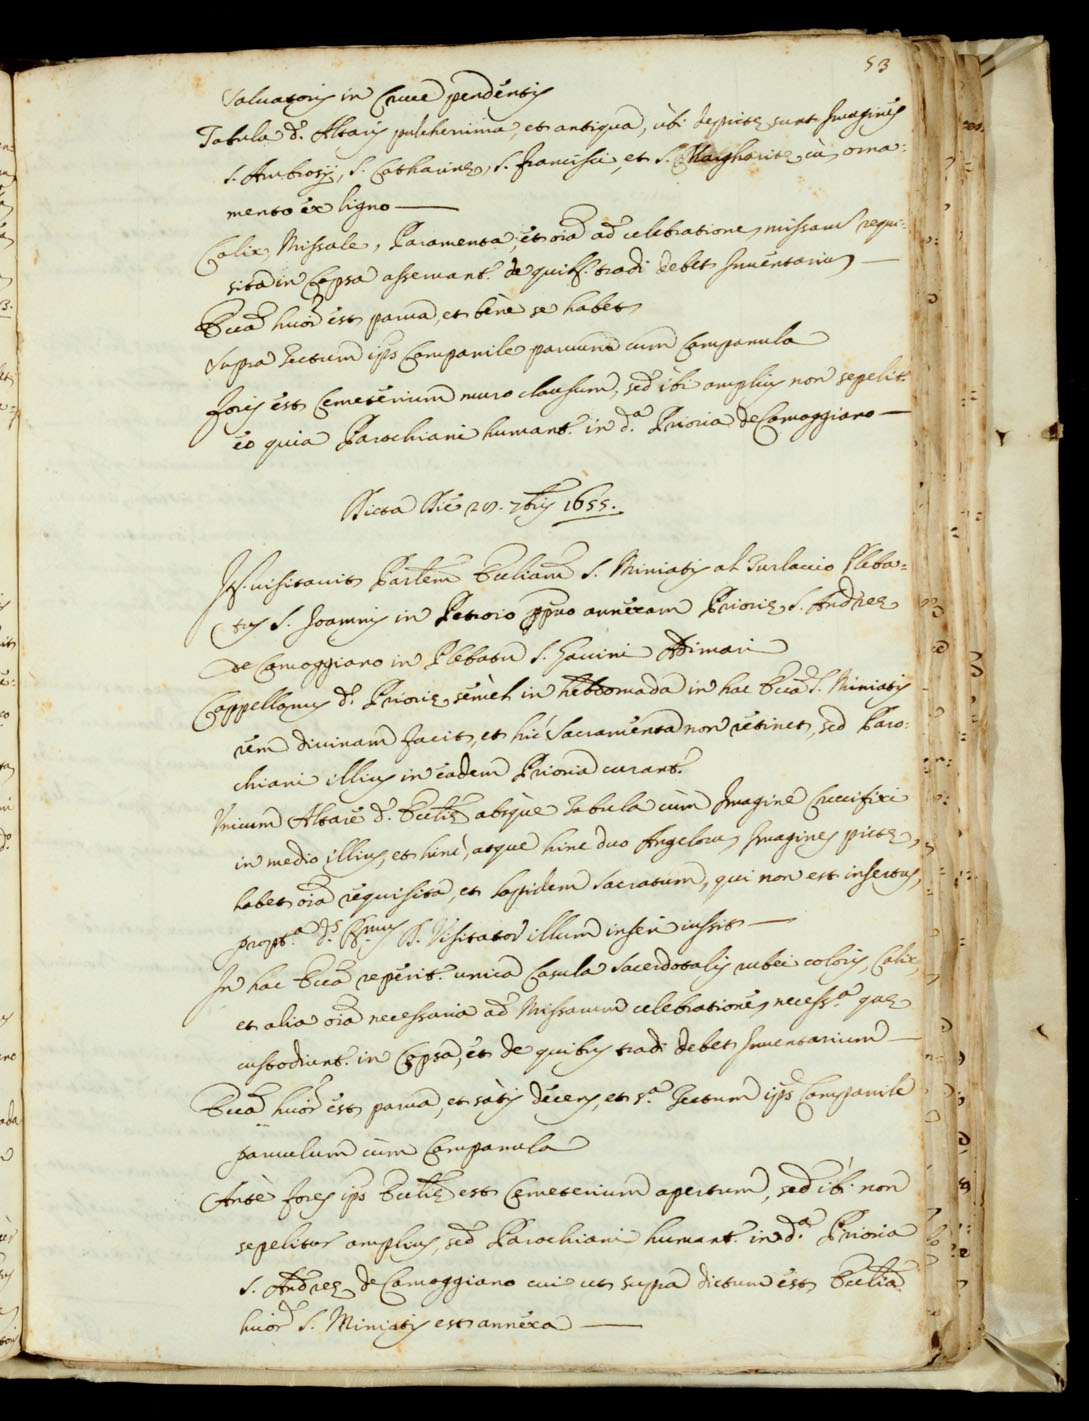 53
Salvatoris in Cruce pendentis
Tabula d.ⁱ Altaris pulcherrima, et antiqua, ubi depictę sunt Imagines
S. Ambrosij, S. Catharinę, S. Francisci, et S. Margharitę cū orna:
mento ex ligno —
Calix, Missale, Paramenta, et oīa ad celebrationē, missarū requi:
sita in Capsa asservant.ʳ de quib.ˢ tradi debet Inventariū —
Ecc.ᵃ huiōi est parva, et benè se habet
Supra Tectum ips Campanile parvum cum Campanula
foris est Cemeterium muro clausum, sed ibi amplius non sepelit.ʳ
eo quia Parochiani humant.ʳ in d.ᵃ Prioria de Camoggiano —
Dicta Die 28. 7bris 1655.
visitavit Parlem Eccliam S. Miniatis al Turlaccio Pleba=
tus S. Joannis in Petroio ppuo annexam Priorię S. Andreę
de Camoggiano in Plebatu S. Gavini Adimari
Cappellanus d.ᵉ Priorię semel in hebdomada in hac Ecc.ᵃ S. Miniatis
rem divinam facit, et hic Sacramenta non retinet, sed Paro:
chiani illius in eadem Prioria curant.ʳ
Unicum Altare d.ᵉ Ecclię absque Tabula cum Imagine Crucifixi
in medio illius, et hinc, atque hinc duo Angelorū Imagines pictę,
habet oīa requisita, et lapidem sacratum, qui non est insertus,
propt.ᵃ d.ˢ R.ᵐᵘˢ D. Visitator illum inseri iussit —
In hac Ecc.ᵃ reperit.ʳ unica Casula Sacerdotalis rubei coloris, Calix,
et alia oīa necessaria ad Missarum celebrationē, necess.ᵃ quę
custodiunt.ʳ in Capsa, et de quibus tradi debet Inventarium —
Ecc.ᵃ huiōi est parva, et satis decens, et s.ᵃ Tectum ips Campanile
parvulum cum Campanula
Ante fores ips Ecclię est Cemeterium apertum, sed ibi non
sepelitur amplius, sed Parochiani humant.ʳ in d.ᵃ Prioria
S. Andreę de Camoggiano cui ut supra dictum est Ecclia
huiōi S. Miniatis est annexa —